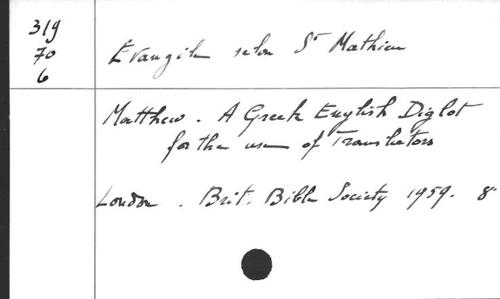 319
70
6
Évangile selon St Mathieu
Matthew. A Greek English Diglot
for the use of Translators
London. Brit. Bible Society 1959. 8°